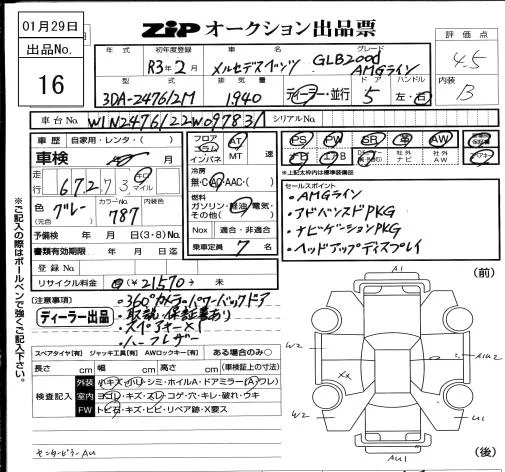 01月29日
出品No.
16
ZIP オークション出品票
評価点
4.5
内装
B
年式 初年度登録 車名 グレード
R3年2月 メルセデスベンツ GLB200d
AMGライン
型式 排気量 ドア ハンドル
3DA-247612M 1940 ディーラー・並行 5 左・右
車台No. W1N2476122W097831 シリアルNo.
車歴 自家用・レンタ・( )
車検 月
走行 67,273 キロ マイル
色(元色) グレー カラーNo. 787 内装色
予備検 年 月 日(3・8)No.
書類有効期限 年 月 日迄
登録No.
リサイクル料金 (¥21570) 未
フロア コラム インパネ AT MT 速
冷房 無・C・AC・AAC・( )
燃料 ガソリン・軽油・電気・その他( )
Nox 適合・非適合
乗車定員 7 名
PS PW SR 革 AW
ナビ エアB 社外ナビ 社外AW
*上記太枠内は標準装備品
セールスポイント
・AMGライン
・アドバンスドPKG
・ナビゲーションPKG
・ヘッドアップディスプレイ
(注意事項)
ディーラー出品
・360°カメラ・パワーバックドア
・取説・保証書あり
・スペアキー×1
・ハーフレザー
スペアタイヤ[有] ジャッキ工具[有] AWロックキー[有] ある場合のみ○
長さ cm 幅 cm 高さ cm (車検証上の寸法)
検査記入
外装 小キズ・小U・シミ・ホイルA・ドアミラー(Aワレ)
室内 ヨゴレ・キズ・スレ・コゲ・穴・キレ・破れ・ウキ
FW トビ石・キズ・ヒビ・リペア跡・X要ス
センターピラーAU
※ご記入の際はボールペンで強くご記入下さい。
(前)
A1
W2
XX
W2
U1
AU1
(後)